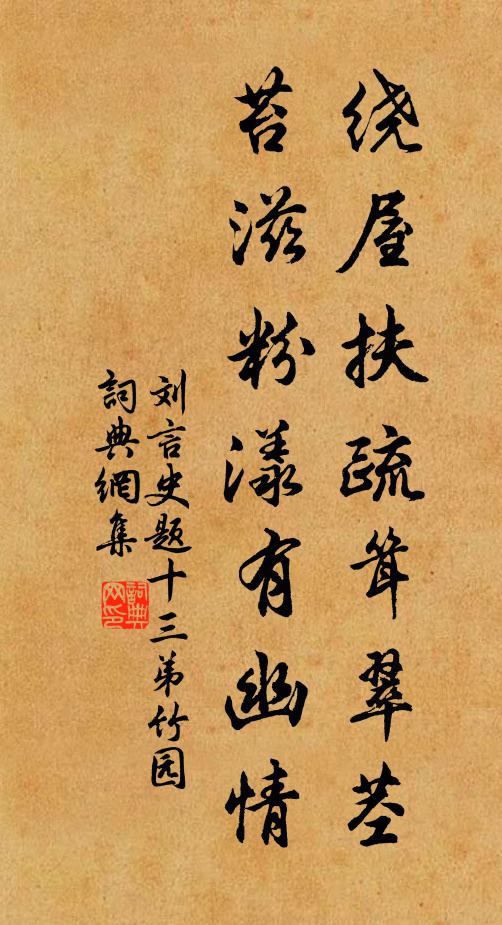 绕屋扶疏耸翠茎
苔滋粉漾有幽情
刘言史题十三弟竹园
詞典網集
詞典网印